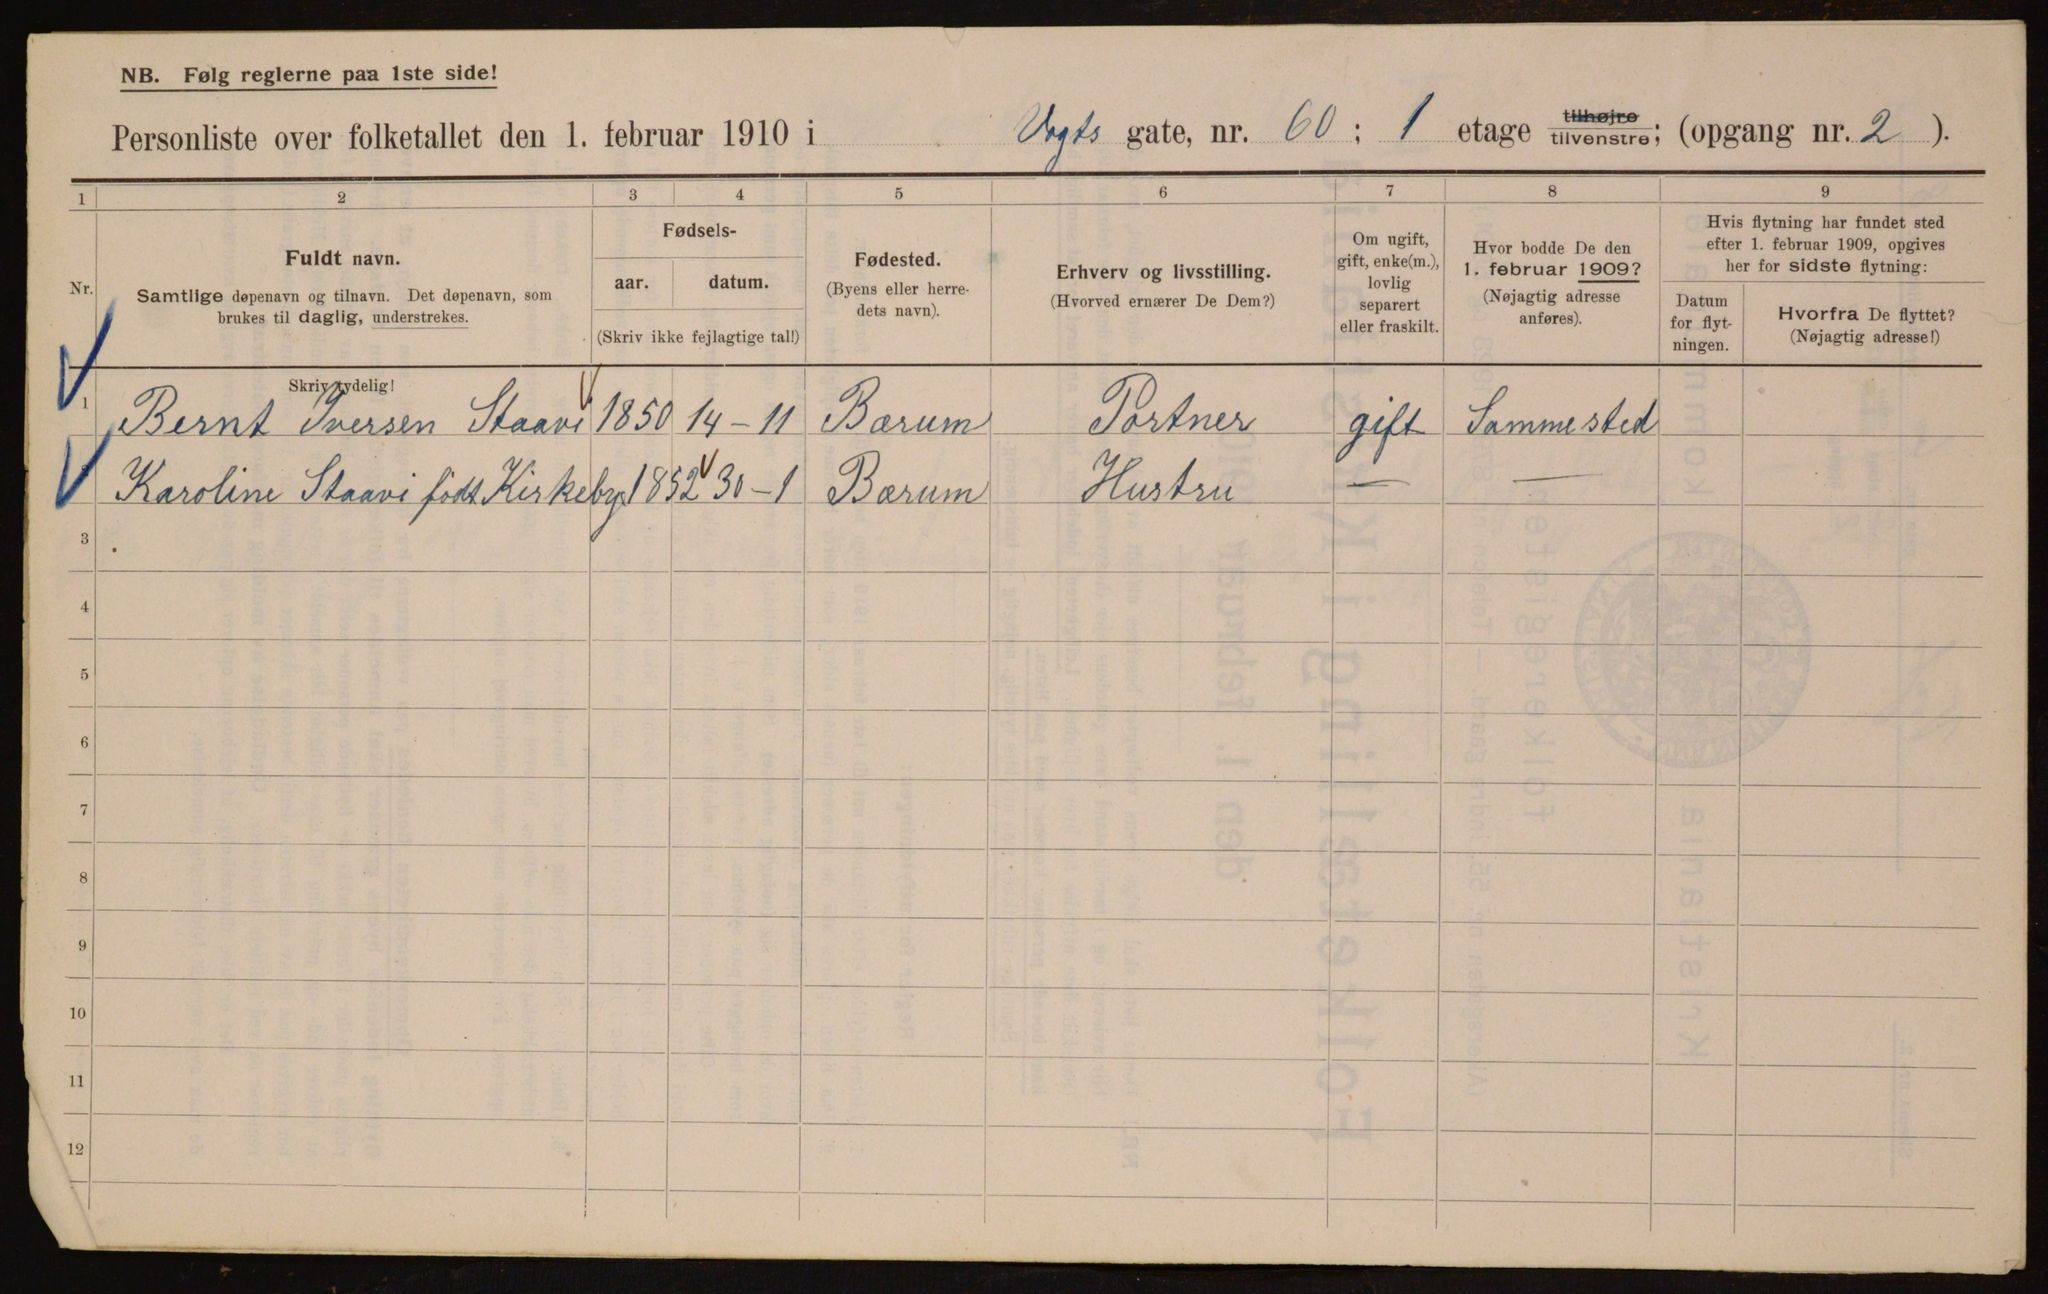 NB. Følg reglerne paa 1ste side!
Personliste over folketallet den 1. februar 1910 i Vogts gate, nr. 60; 1 etage tilhøjre tilvenstre; (opgang nr. 2).
1 2 3 4 5 6 7 8 9
Nr.
Fuldt navn.
Samtlige døpenavn og tilnavn. Det døpenavn, som
brukes til daglig, understrekes.
Fødsels-
aar. datum.
(Skriv ikke fejlagtige tal!)
Fødested.
(Byens eller herre-
dets navn).
Erhverv og livsstilling.
(Hvorved ernærer De Dem?)
Om ugift,
gift, enke(m.),
lovlig
separert
eller fraskilt.
Hvor bodde De den
1. februar 1909?
(Nøjagtig adresse
anføres).
Hvis flytning har fundet sted
efter 1. februar 1909, opgives
her for sidste flytning:
Datum
for flyt-
ningen.
Hvorfra De flyttet?
(Nøjagtig adresse!)
Skriv tydelig!
1 Bernt Iversen Staavi 1850 14-11 Bærum Portner gift Sammested
Karoline Staavi født Kirkeby 1852 30-1 Bærum Hustru — —
3
4
5
6
7
8
9
10
11
12